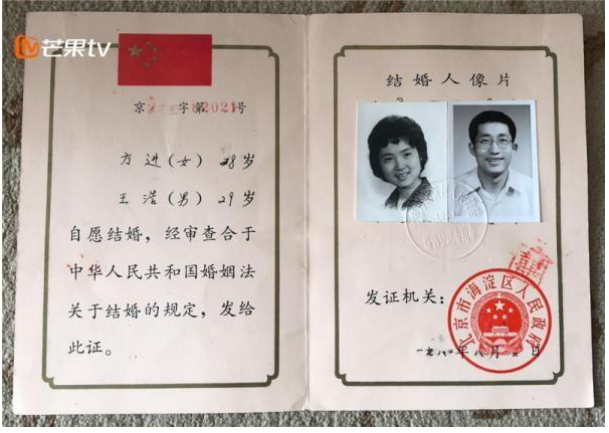 芒果tv
京 字第 2021号
方进(女) 28岁
王浩(男) 29岁
自愿结婚,经审查合于
中华人民共和国婚姻法
关于结婚的规定,发给
此证。
结婚人像片
发证机关:
北京市海淀区人民政府
一九八〇年八月 日